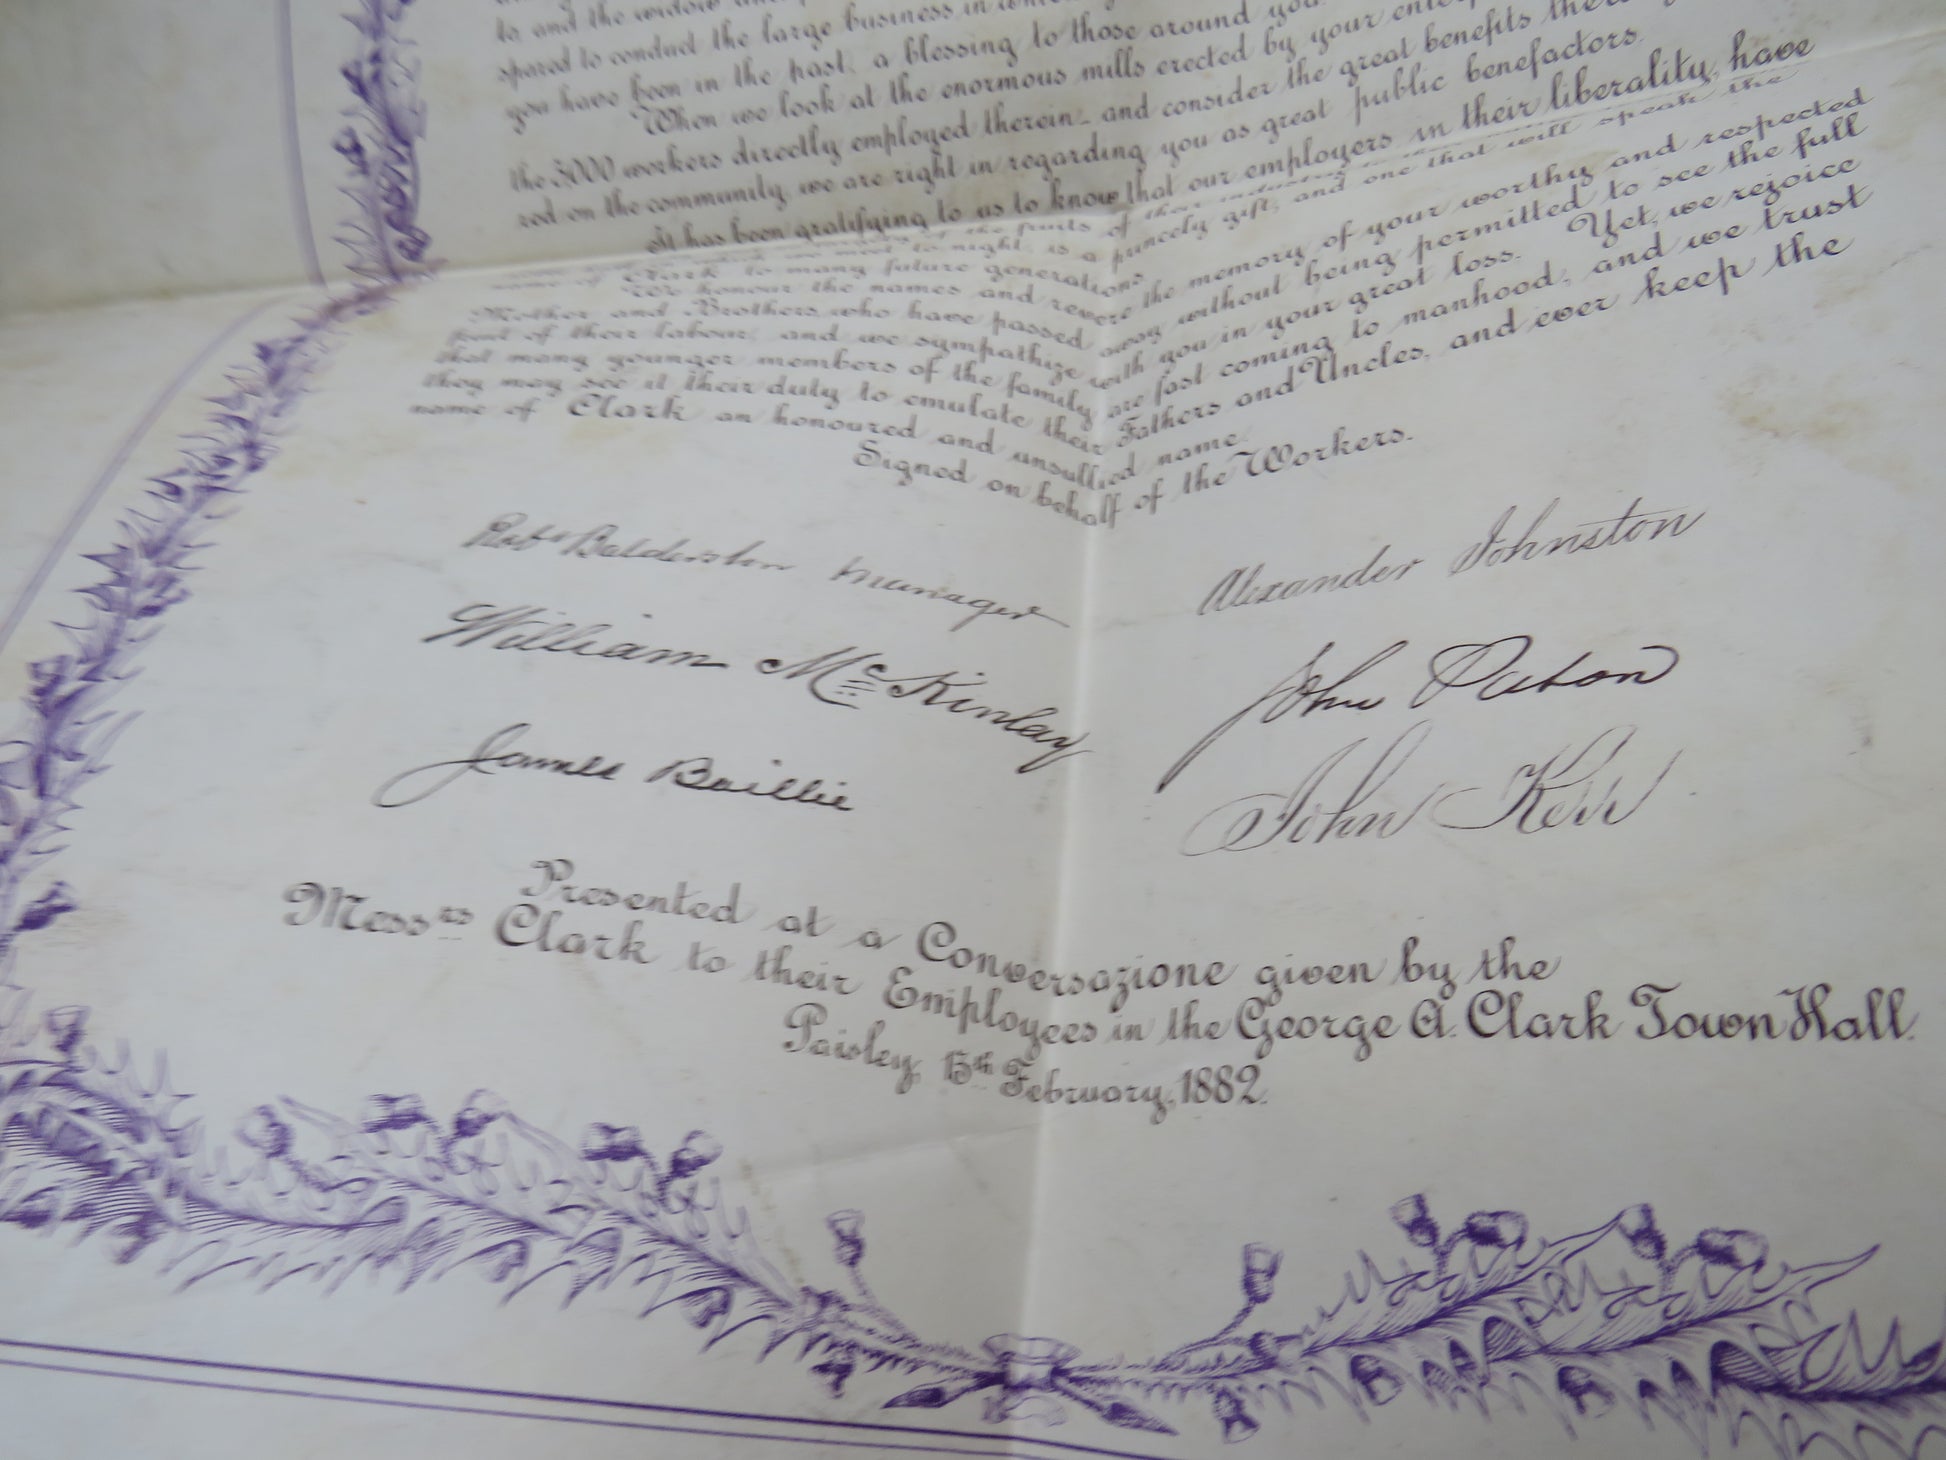 to, and the widow
spared to conduct the large business in which
you have been in the past, a blessing to those around you.
When we look at the enormous mills erected by your
the 3,000 workers directly employed therein and consider the great benefits
red on the community, we are right in regarding you as great public benefactors.
It has been gratifying to us to know that our employers in their liberality, have
of the fruits of their industry
to night, is a princely gift, and one that will speak the
name of Clark to many future generations.
We honour the names and revere the memory of your worthy and respected
Mother and Brothers, who have passed away without being permitted to see the full
fruit of their labour, and we sympathize with you in your great loss. Yet, we rejoice
that many younger members of the family are fast coming to manhood, and we trust
they may see it their duty to emulate their Fathers and Uncles, and ever keep the
name of Clark an honoured and unsullied name.
Signed on behalf of the Workers.
Robt Balderston Manager
Alexander Johnston
William McKinlay
John Paton
James Baillie
John Kerr
Presented at a Conversazione given by the
Messrs Clark to their Employees in the George A. Clark Town Hall.
Paisley, 15th February, 1882.